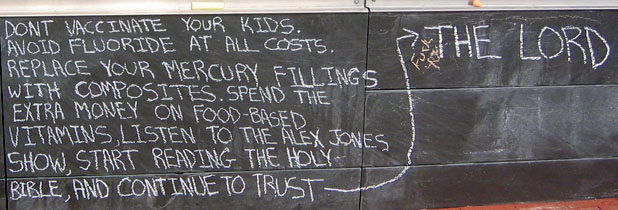 DONT VACCINATE YOUR KIDS.
AVOID FLUORIDE AT ALL COSTS.
REPLACE YOUR MERCURY FILLINGS
WITH COMPOSITES. SPEND THE
EXTRA MONEY ON FOOD-BASED
VITAMINS, LISTEN TO THE ALEX JONES
SHOW, START READING THE HOLY
BIBLE, AND CONTINUE TO TRUST
THE LORD